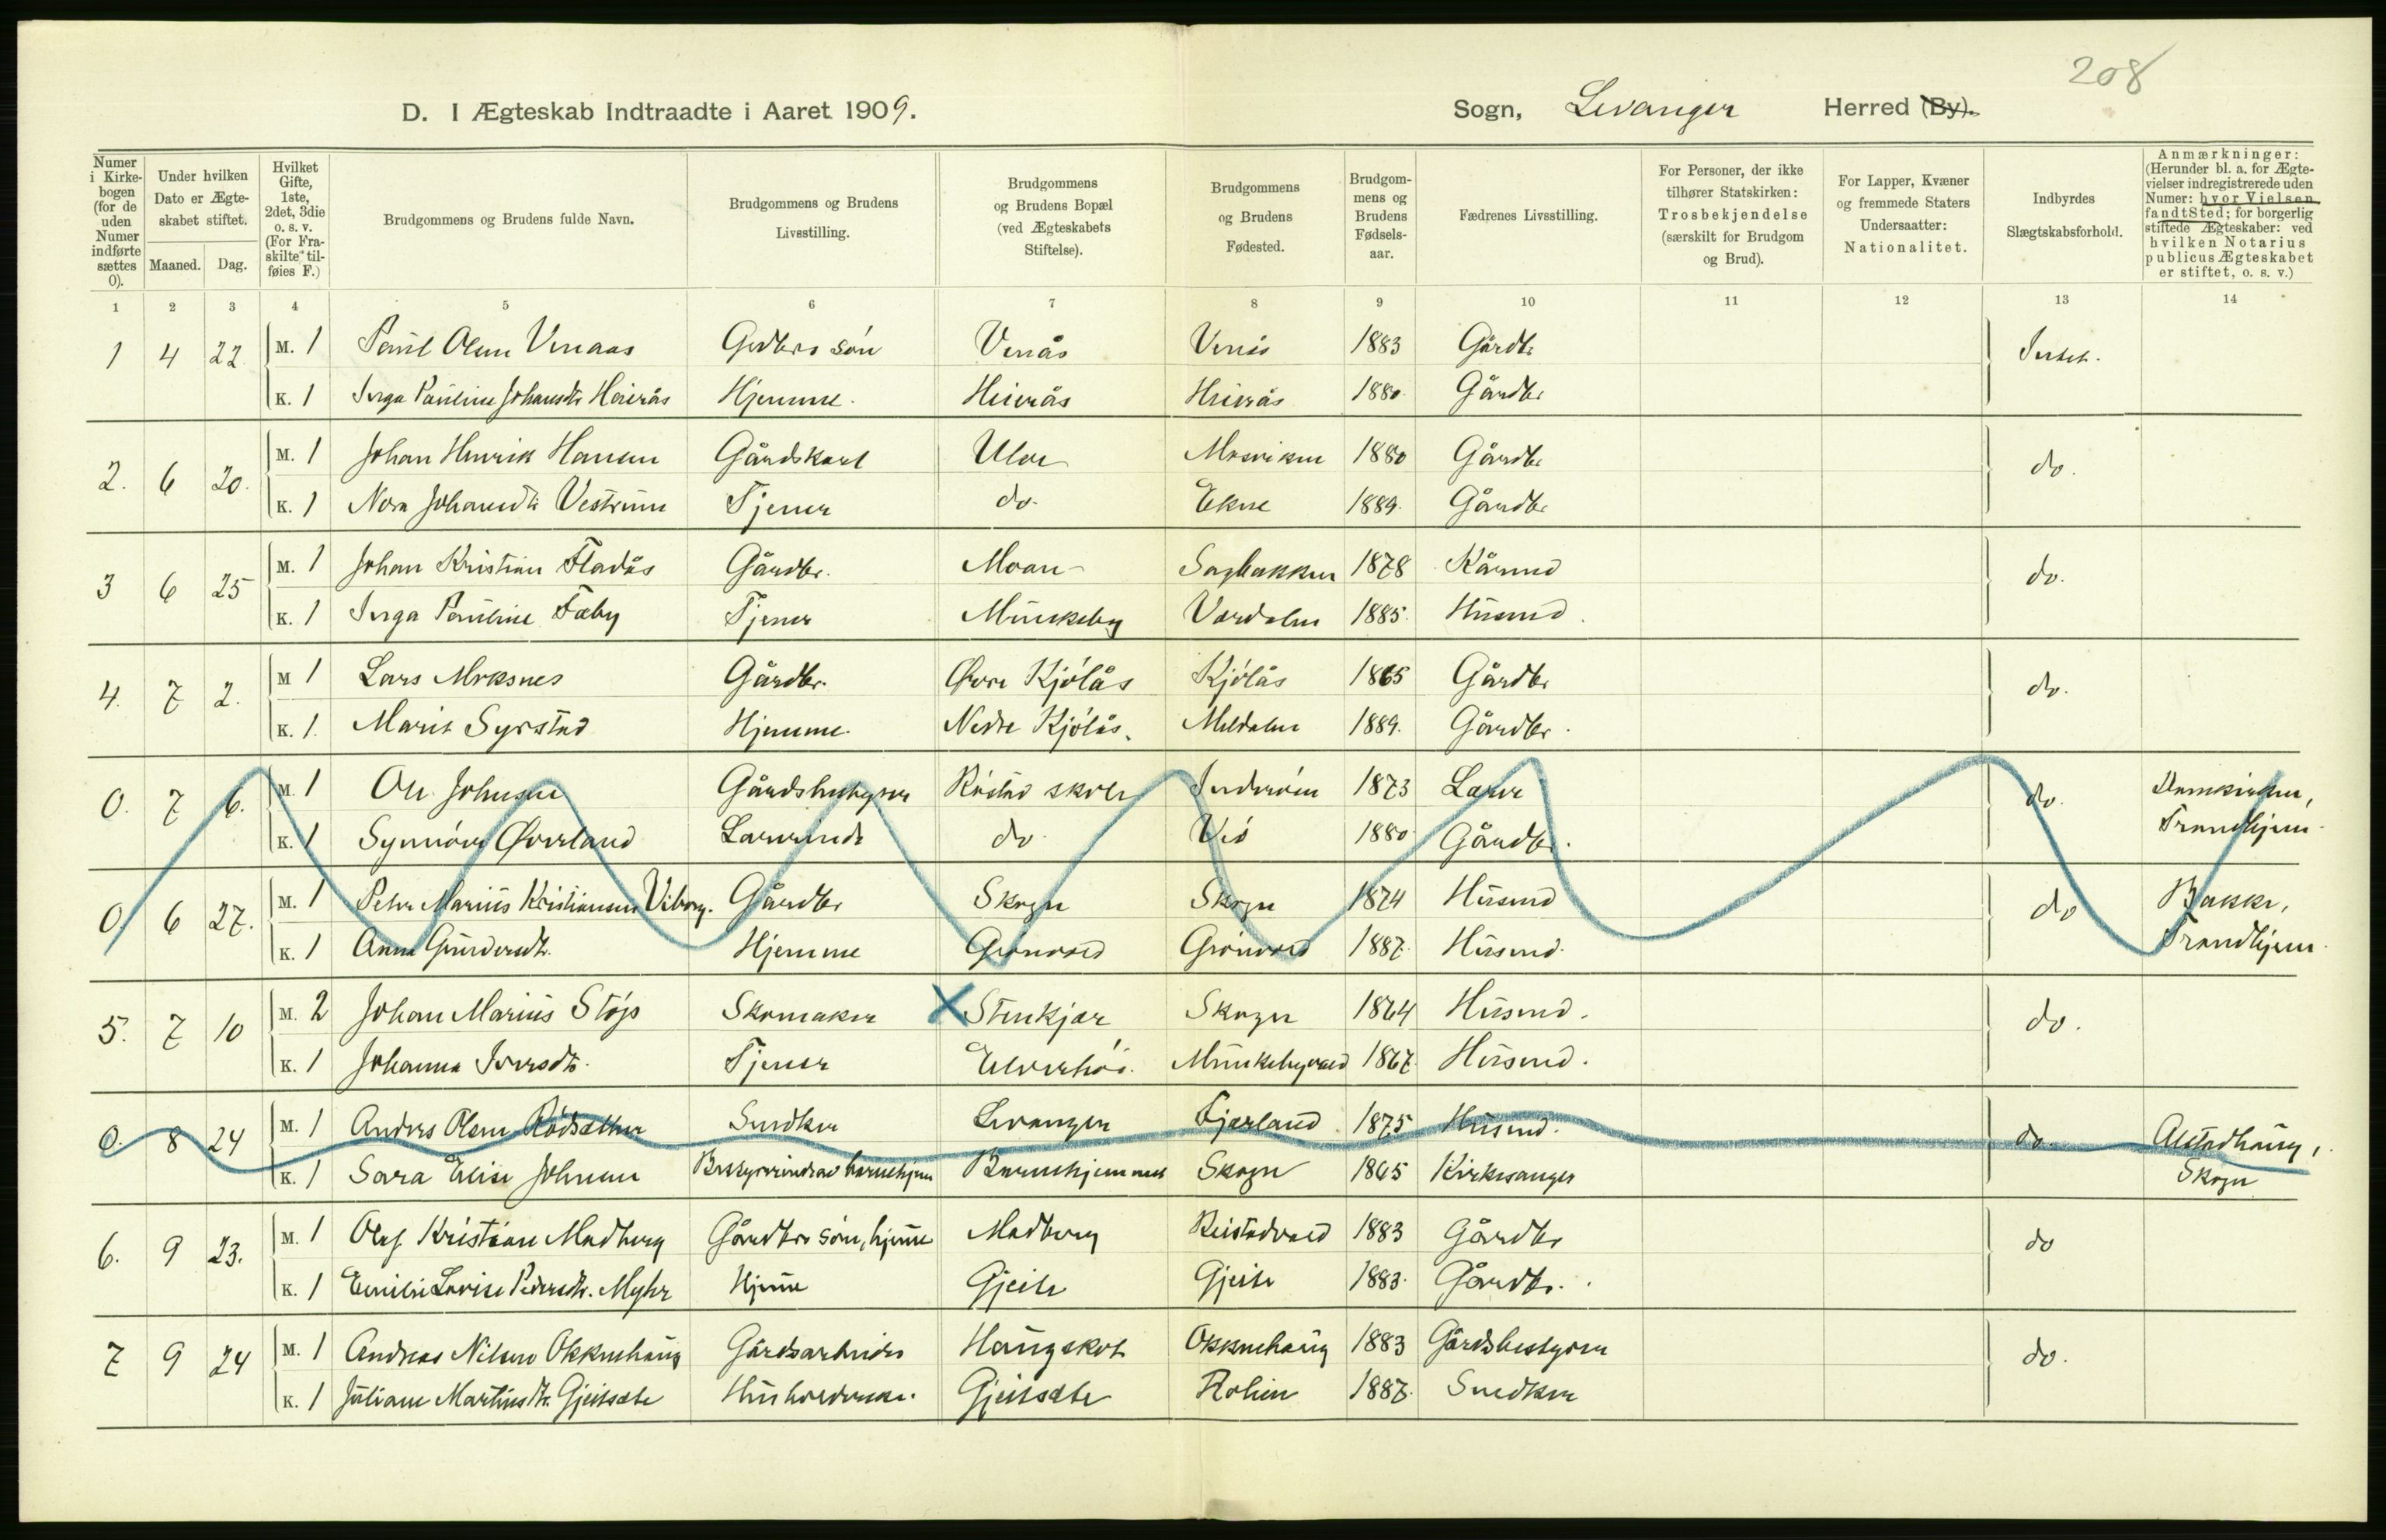 208
D. I Ægteskab Indtraadte i Aaret 1909. Sogn, Levanger Herred (By).
Numer i Kirke-bogen (for de uden Numer indførte sættes 0).
Under hvilken Dato er Ægte-skabet stiftet.
Maaned. Dag.
Hvilket Gifte, 1ste, 2det, 3die o. s. v. (For Fra-skilte til-føies F.)
Brudgommens og Brudens fulde Navn.
Brudgommens og Brudens Livsstilling.
Brudgommens og Brudens Bopæl (ved Ægteskabets Stiftelse).
Brudgommens og Brudens Fødested.
Brudgom-mens og Brudens Fødsels-aar.
Fædrenes Livsstilling.
For Personer, der ikke tilhører Statskirken: Trosbekjendelse (særskilt for Brudgom og Brud).
For Lapper, Kvæner og fremmede Staters Undersaatter: Nationalitet.
Indbyrdes Slægtskabsforhold.
Anmærkninger: (Herunder bl. a. for Ægte-vielser indregistrerede uden Numer: hvor Vielsen fandt Sted; for borgerlig stiftede Ægteskaber: ved hvilken Notarius publicus Ægteskabet er stiftet, o. s. v.)
1 2 3 4 5 6 7 8 9 10 11 12 13 14
1 4 22 M. 1 Paul Olsen Venaas Gdbrs søn Venås Venås 1883 Gårdbr Intet.
K. 1 Inga Pauline Johansdtr Heierås Hjemme. Heierås Heierås 1880. Gårdbr
2. 6 20. M. 1 Johan Henrik Hansen Gårdskarl Ulve Mosviken 1880 Gårdbr do.
K. 1 Nora Johansdtr Vestrum Tjener do. Ekne 1889. Gårdbr
3 6 25 M. 1 Johan Kristian Fladås Gårdbr. Moan Sagbakken 1878 Kårmd do.
K. 1 Inga Pauline Fæby Tjener Munkeby Værdalen 1885. Husmd.
4. 7 2. M 1 Lars Moksnes Gårdbr. Øvre Kjölås Kjölås 1865 Gårdbr do.
K. 1. Marit Syrstad Hjemme. Nedre Kjölås. Meldalen 1889. Gårdbr.
0. 7 6. M. 1 Ole Johnsen Gårdsbestyrer Röstad skole Inderöen 1873 Lærer do. Domkirken,
K. 1 Synnöve Øverland Lærerinde do Vik 1880. Gårdbr. Trondhjem.
0. 6 27. M. 1 Peter Marius Kristiansen Viborg. Gårdbr Skogn Skogn 1874 Husmd do Bakke,
K. 1 Anna Gundersdtr. Hjemme Grönvold Grönvold 1887. Husmd. Trondhjem.
5. 7 10 M. 2 Johan Marius Stöp Skomaker Stenkjær Skogn 1864 Husmd. do.
K. 1 Johanna Iversdtr. Tjener Elverhöi. Munkebyvald 1867. Husmd.
0. 8 24 M. 1 Anders Olsen Rödsether Snedker Levanger Fjærland 1875 Husmd. do. Alstadhaug,
K. 1 Sara Elise Johnsen Bestyrerinde av barnehjem Barnehjemmet Skogn 1865 Kirkesanger Skogn
6. 9 23. M. 1 Olaf Kristian Madberg Gårdbrs søn, hjemme Madberg Reistadvald 1883 Gårdbr do
K. 1 Emilie Lovise Pedersdtr. Myhr Hjemme Gjeite Gjeite 1883. Gårdbr.
7 9 24 M. 1 Andreas Nilsen Okkenhaug Gårdsarbeider Haugskot Okkenhaug 1883 Gårdsbestyrer do.
K. 1 Juliane Martinsdtr. Gjeitsæte Husholderske. Gjeitsæte 1887. Snedker